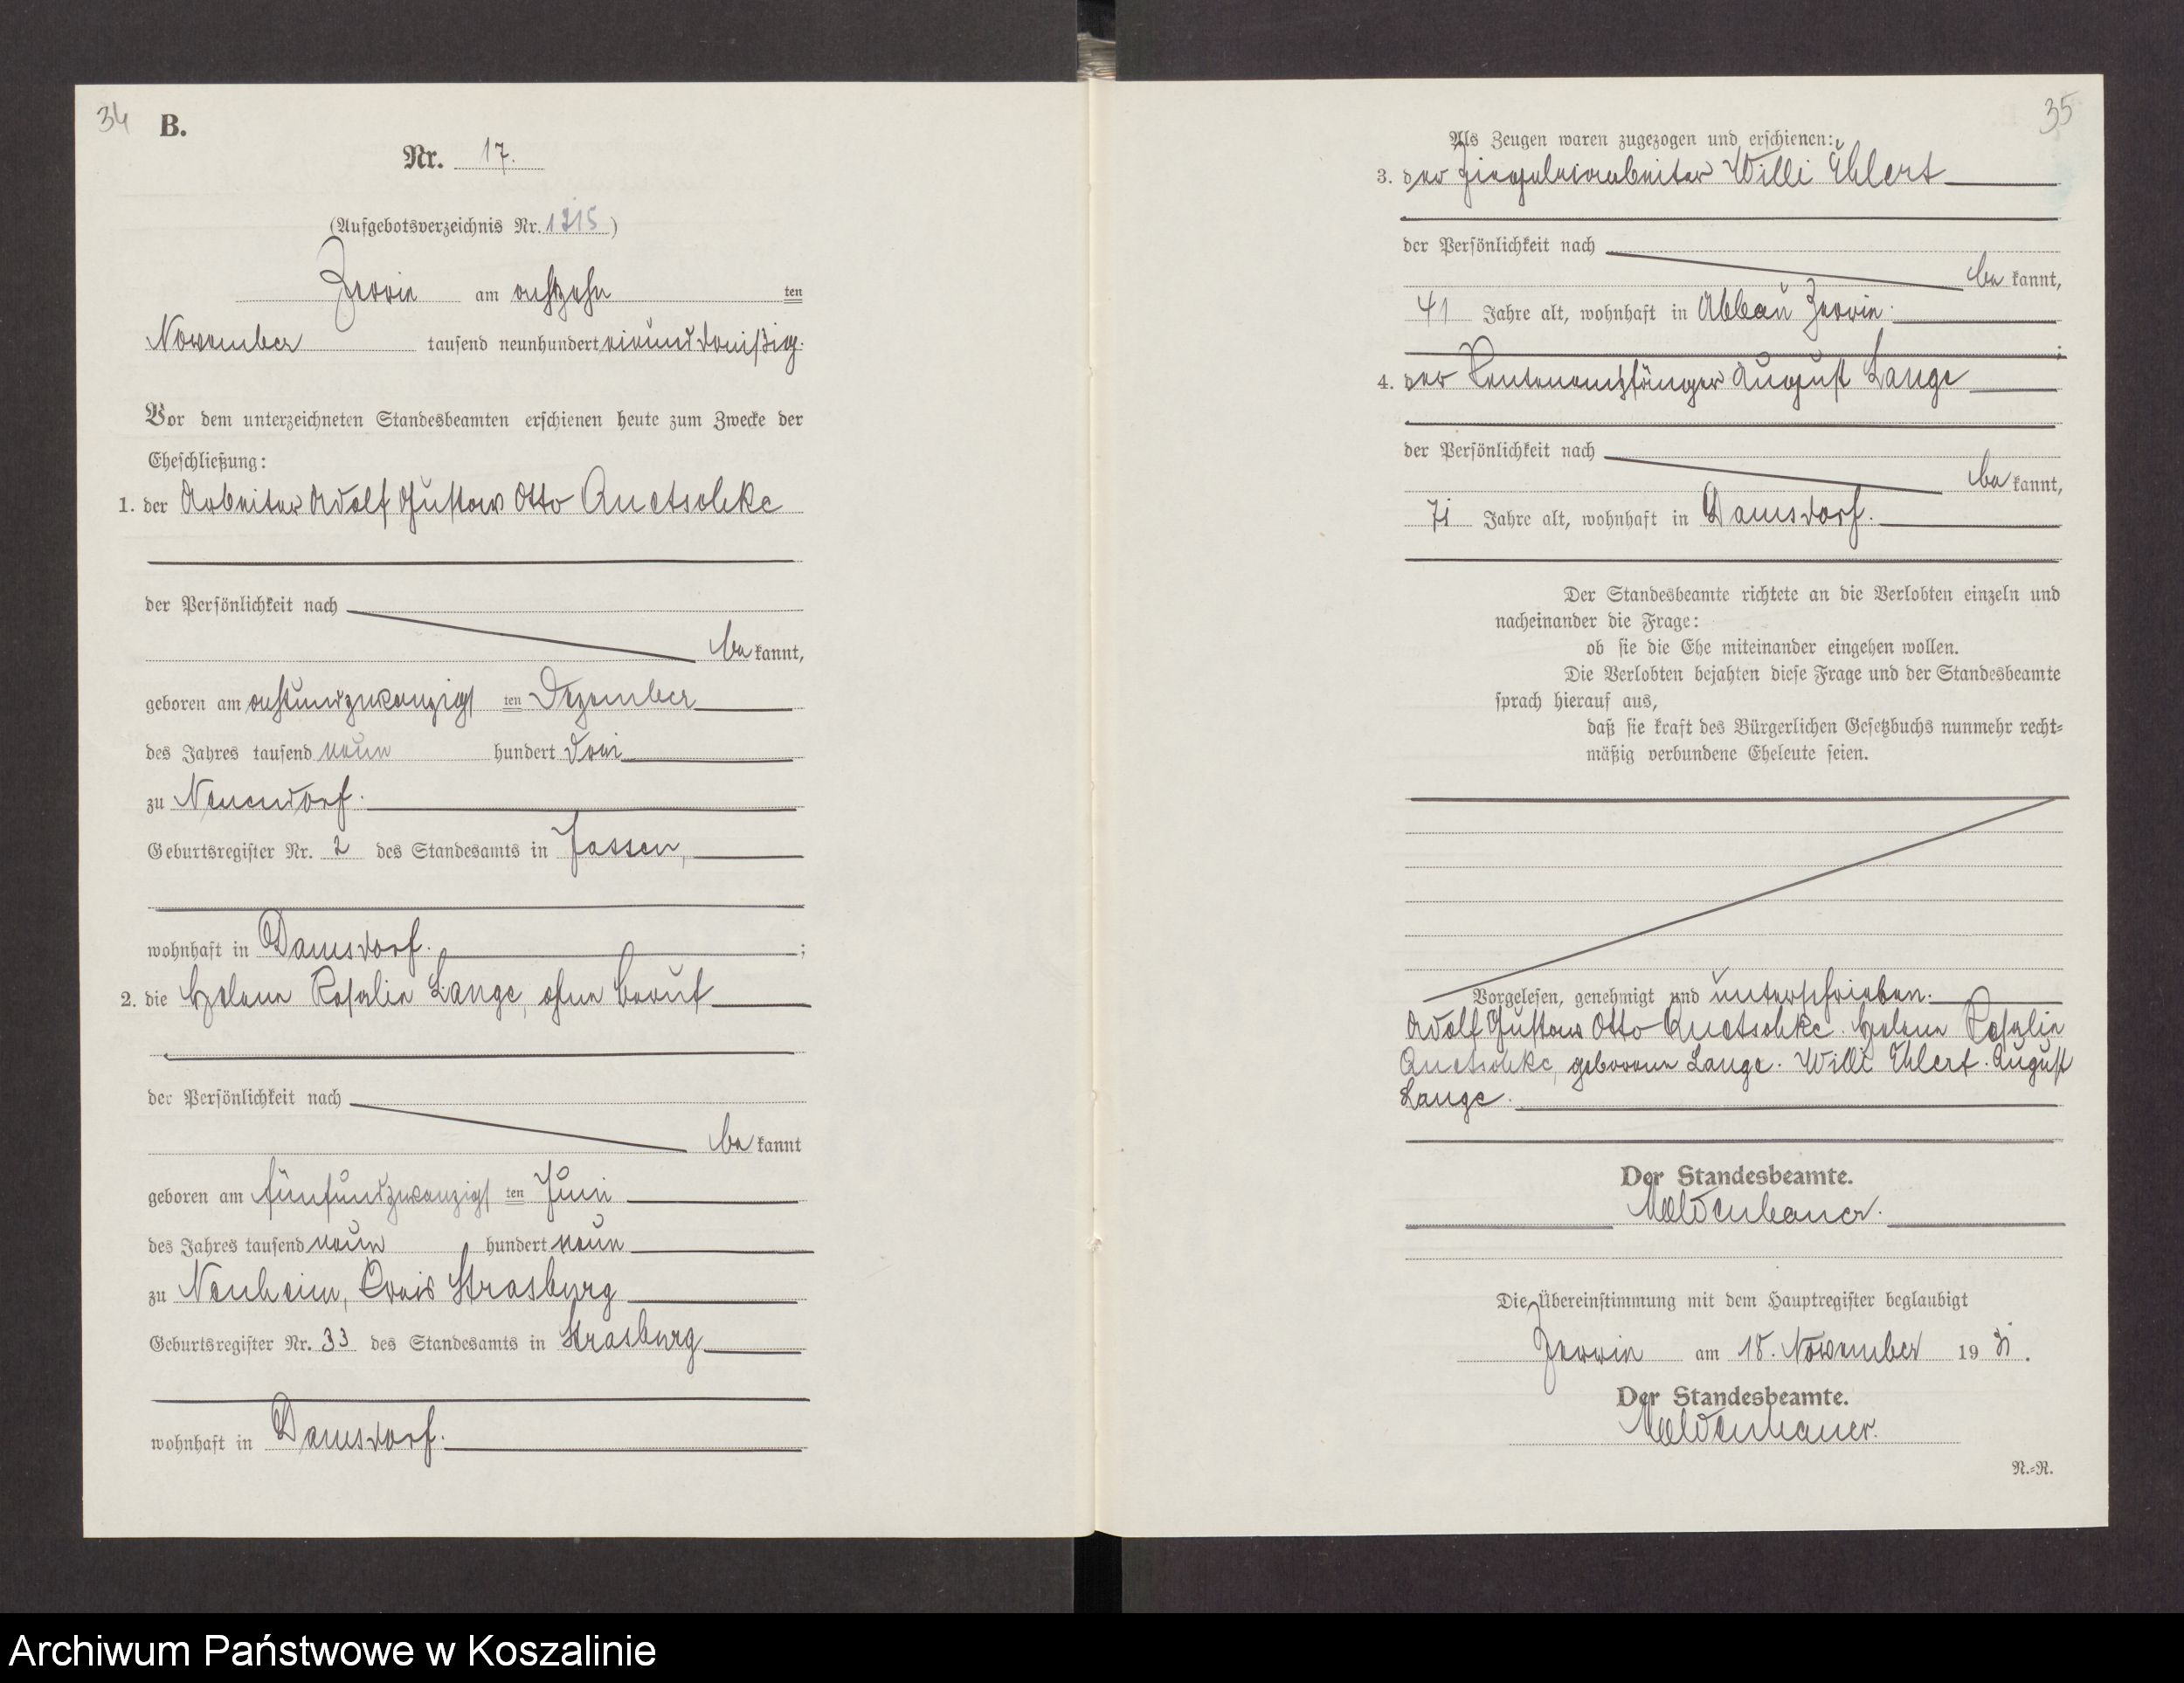 34 B.
Nr. 17.
(Aufgebotsverzeichnis Nr. 1215)
Zerrin am achtzehn ten
November tausend neunhundert einunddreißig.
Vor dem unterzeichneten Standesbeamten erschienen heute zum Zwecke der
Eheschließung:
1. der Arbeiter Adolf Gustav Otto Quetschke
der Persönlichkeit nach
be kannt,
geboren am achtundzwanzigs ten Dezember
des Jahres tausend neun hundert drei
zu Neuendorf.
Geburtsregister Nr. 2 des Standesamts in Jassen,
wohnhaft in Damsdorf. ;
2. die Helene Rosalie Lange, ohne Beruf
der Persönlichkeit nach
be kannt
geboren am fünfundzwanzigs ten Juni
des Jahres tausend neun hundert neun
zu Neuheim, Kreis Strasburg
Geburtsregister Nr. 33 des Standesamts in Strasburg
wohnhaft in Damsdorf.
35
Als Zeugen waren zugezogen und erschienen:
3. der Ziegeleiarbeiter Willi Ehlert
der Persönlichkeit nach
be kannt,
41 Jahre alt, wohnhaft in Abbau Zerrin.
;
4. der Rentenempfänger August Lange
der Persönlichkeit nach
be kannt,
71 Jahre alt, wohnhaft in Damsdorf.
Der Standesbeamte richtete an die Verlobten einzeln und
nacheinander die Frage:
ob sie die Ehe miteinander eingehen wollen.
Die Verlobten bejahten diese Frage und der Standesbeamte
sprach hierauf aus,
daß sie kraft des Bürgerlichen Gesetzbuchs nunmehr recht-
mäßig verbundene Eheleute seien.
Vorgelesen, genehmigt und unterschrieben.
Adolf Gustav Otto Quetschke. Helene Rosalie
Quetschke, geborene Lange. Willi Ehlert. August
Lange.
Der Standesbeamte.
Moldenhauer.
Die Übereinstimmung mit dem Hauptregister beglaubigt
Zerrin am 18. November 19 31.
Der Standesbeamte.
Moldenhauer.
R.=R.
Archiwum Państwowe w Koszalinie